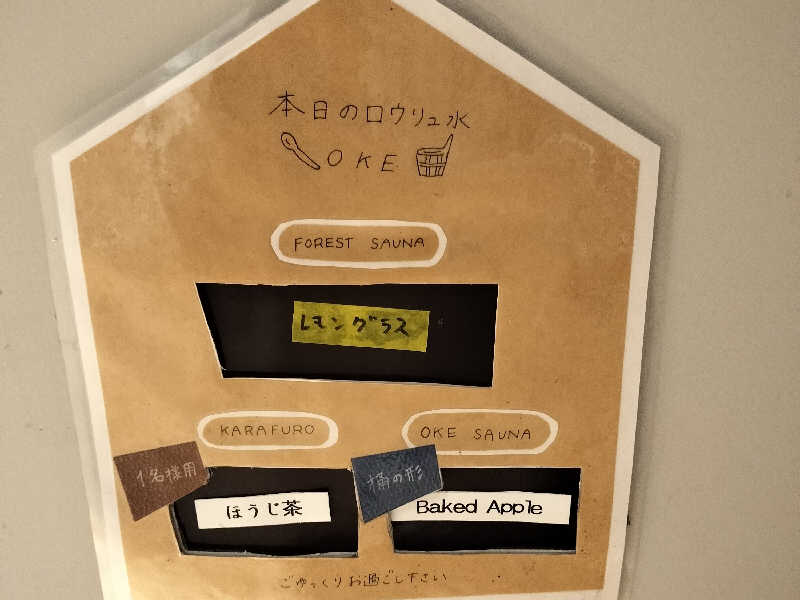 本日のロウリュ水
OKE
FOREST SAUNA
レモングラス
KARAFURO
OKE SAUNA
1名様用
桶の形
ほうじ茶
Baked Apple
ごゆっくりお過ごし下さい